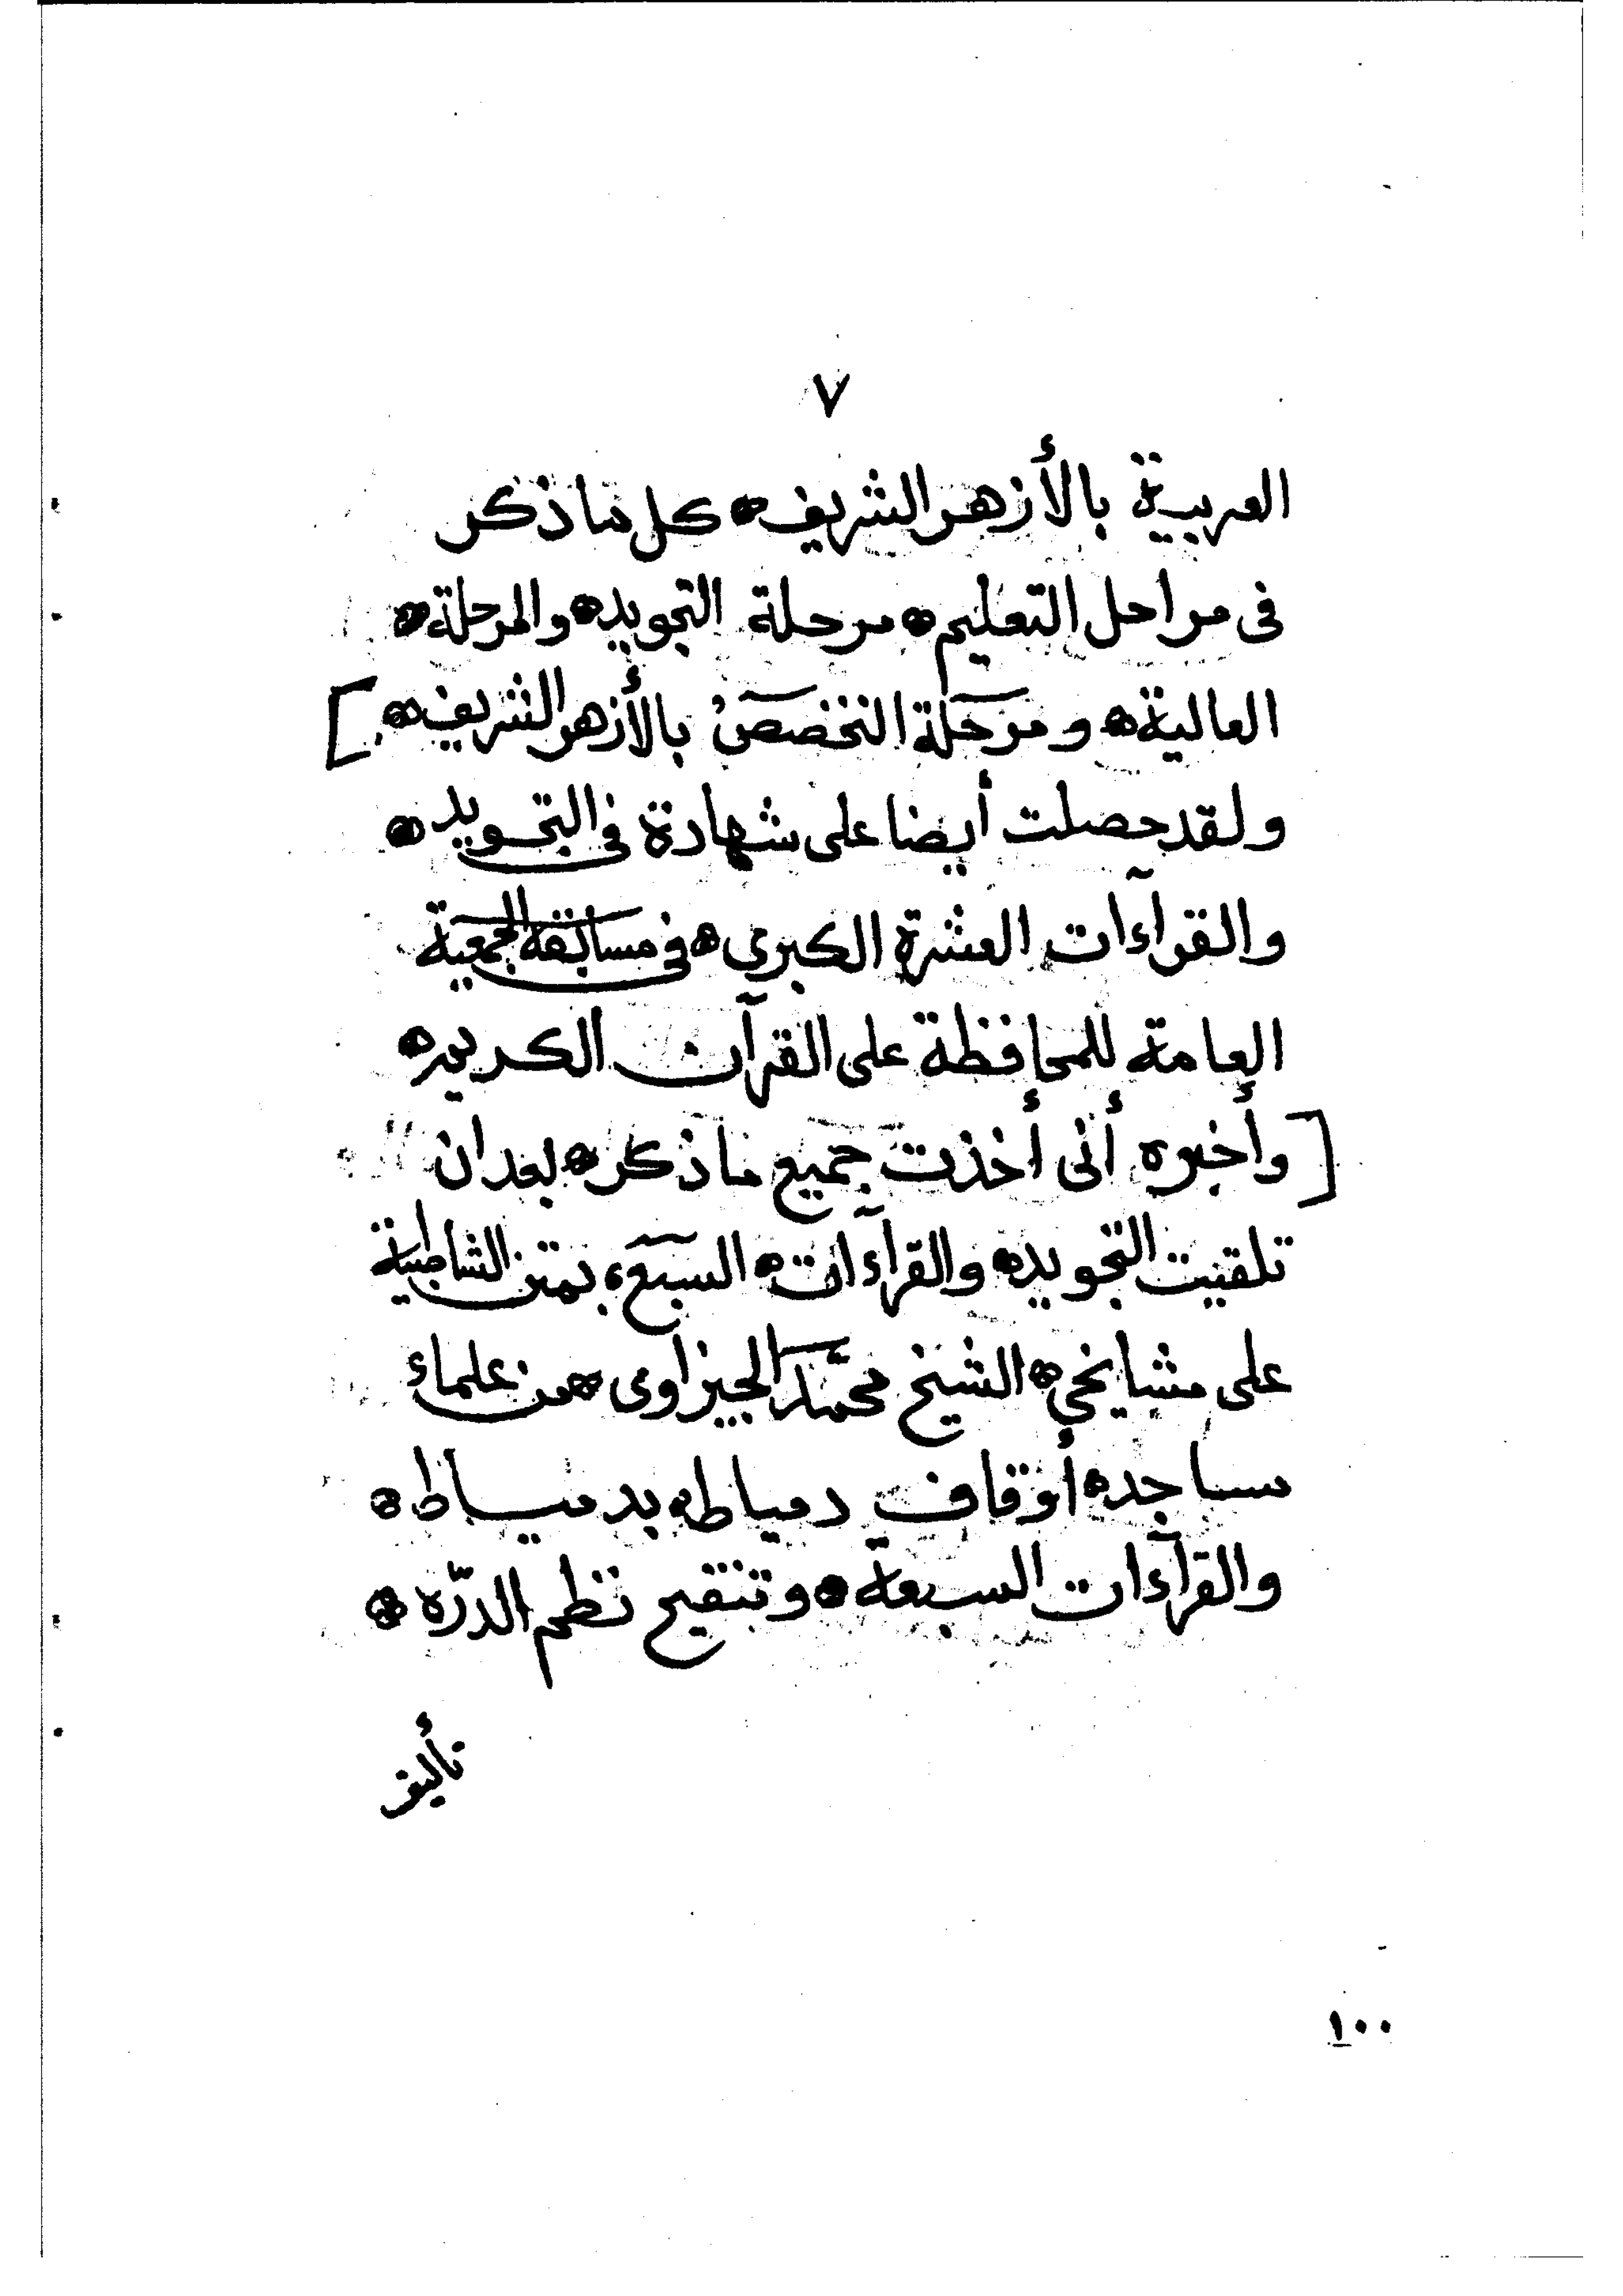 ٧
العربية بالأزهر الشريف ۞ كل ما ذكر
فى مراحل التعليم ۞ مرحلة التجويد ۞ والمرحلة ۞
العالية ۞ ومرحلة التخصص بالأزهر الشريف ۞ ]
ولقد حصلت أيضا على شهادة فى التجويد ۞
والقرآءات العشرة الكبرى ۞ فى مسابقة الجمعية
العامة للمحافظة على القرآن الكريم ۞
[ وأخبره أنى أخذت جميع ما ذكر ۞ بعد ان
تلقيت التجويد ۞ والقرآءات ۞ السبع، بمتن الشاطبية
على مشايخي ۞ الشيخ محمّد الجيزاوى ۞ من علماء
مساجد ۞ أوقاف دمياط ۞ بدمياط ۞
والقرآءات السبعة ۞ وتنقيح نظم الدرّه ۞
تأليف
١٠٠